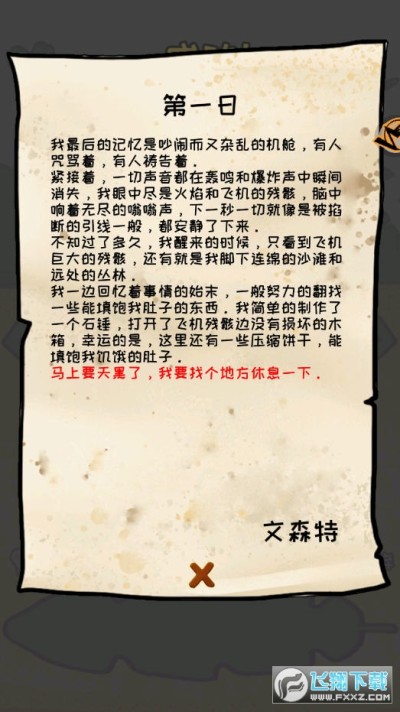 第一日
我最后的记忆是吵闹而又杂乱的机舱，有人
咒骂着，有人祷告着．
紧接着，一切声音都在轰鸣和爆炸声中瞬间
消失，我眼中尽是火焰和飞机的残骸，脑中
响着无尽的嗡嗡声，下一秒一切就像是被掐
断的引线一般，都安静了下来．
不知过了多久，我醒来的时候，只看到飞机
巨大的残骸，还有就是我脚下连绵的沙滩和
远处的丛林．
我一边回忆着事情的始末，一般努力的翻找
一些能填饱我肚子的东西．我简单的制作了
一个石锤，打开了飞机残骸边没有损坏的木
箱，幸运的是，这里还有一些压缩饼干，能
填饱我饥饿的肚子．
马上要天黑了，我要找个地方休息一下．
文森特
飞翔下载
WWW.FXXZ.COM